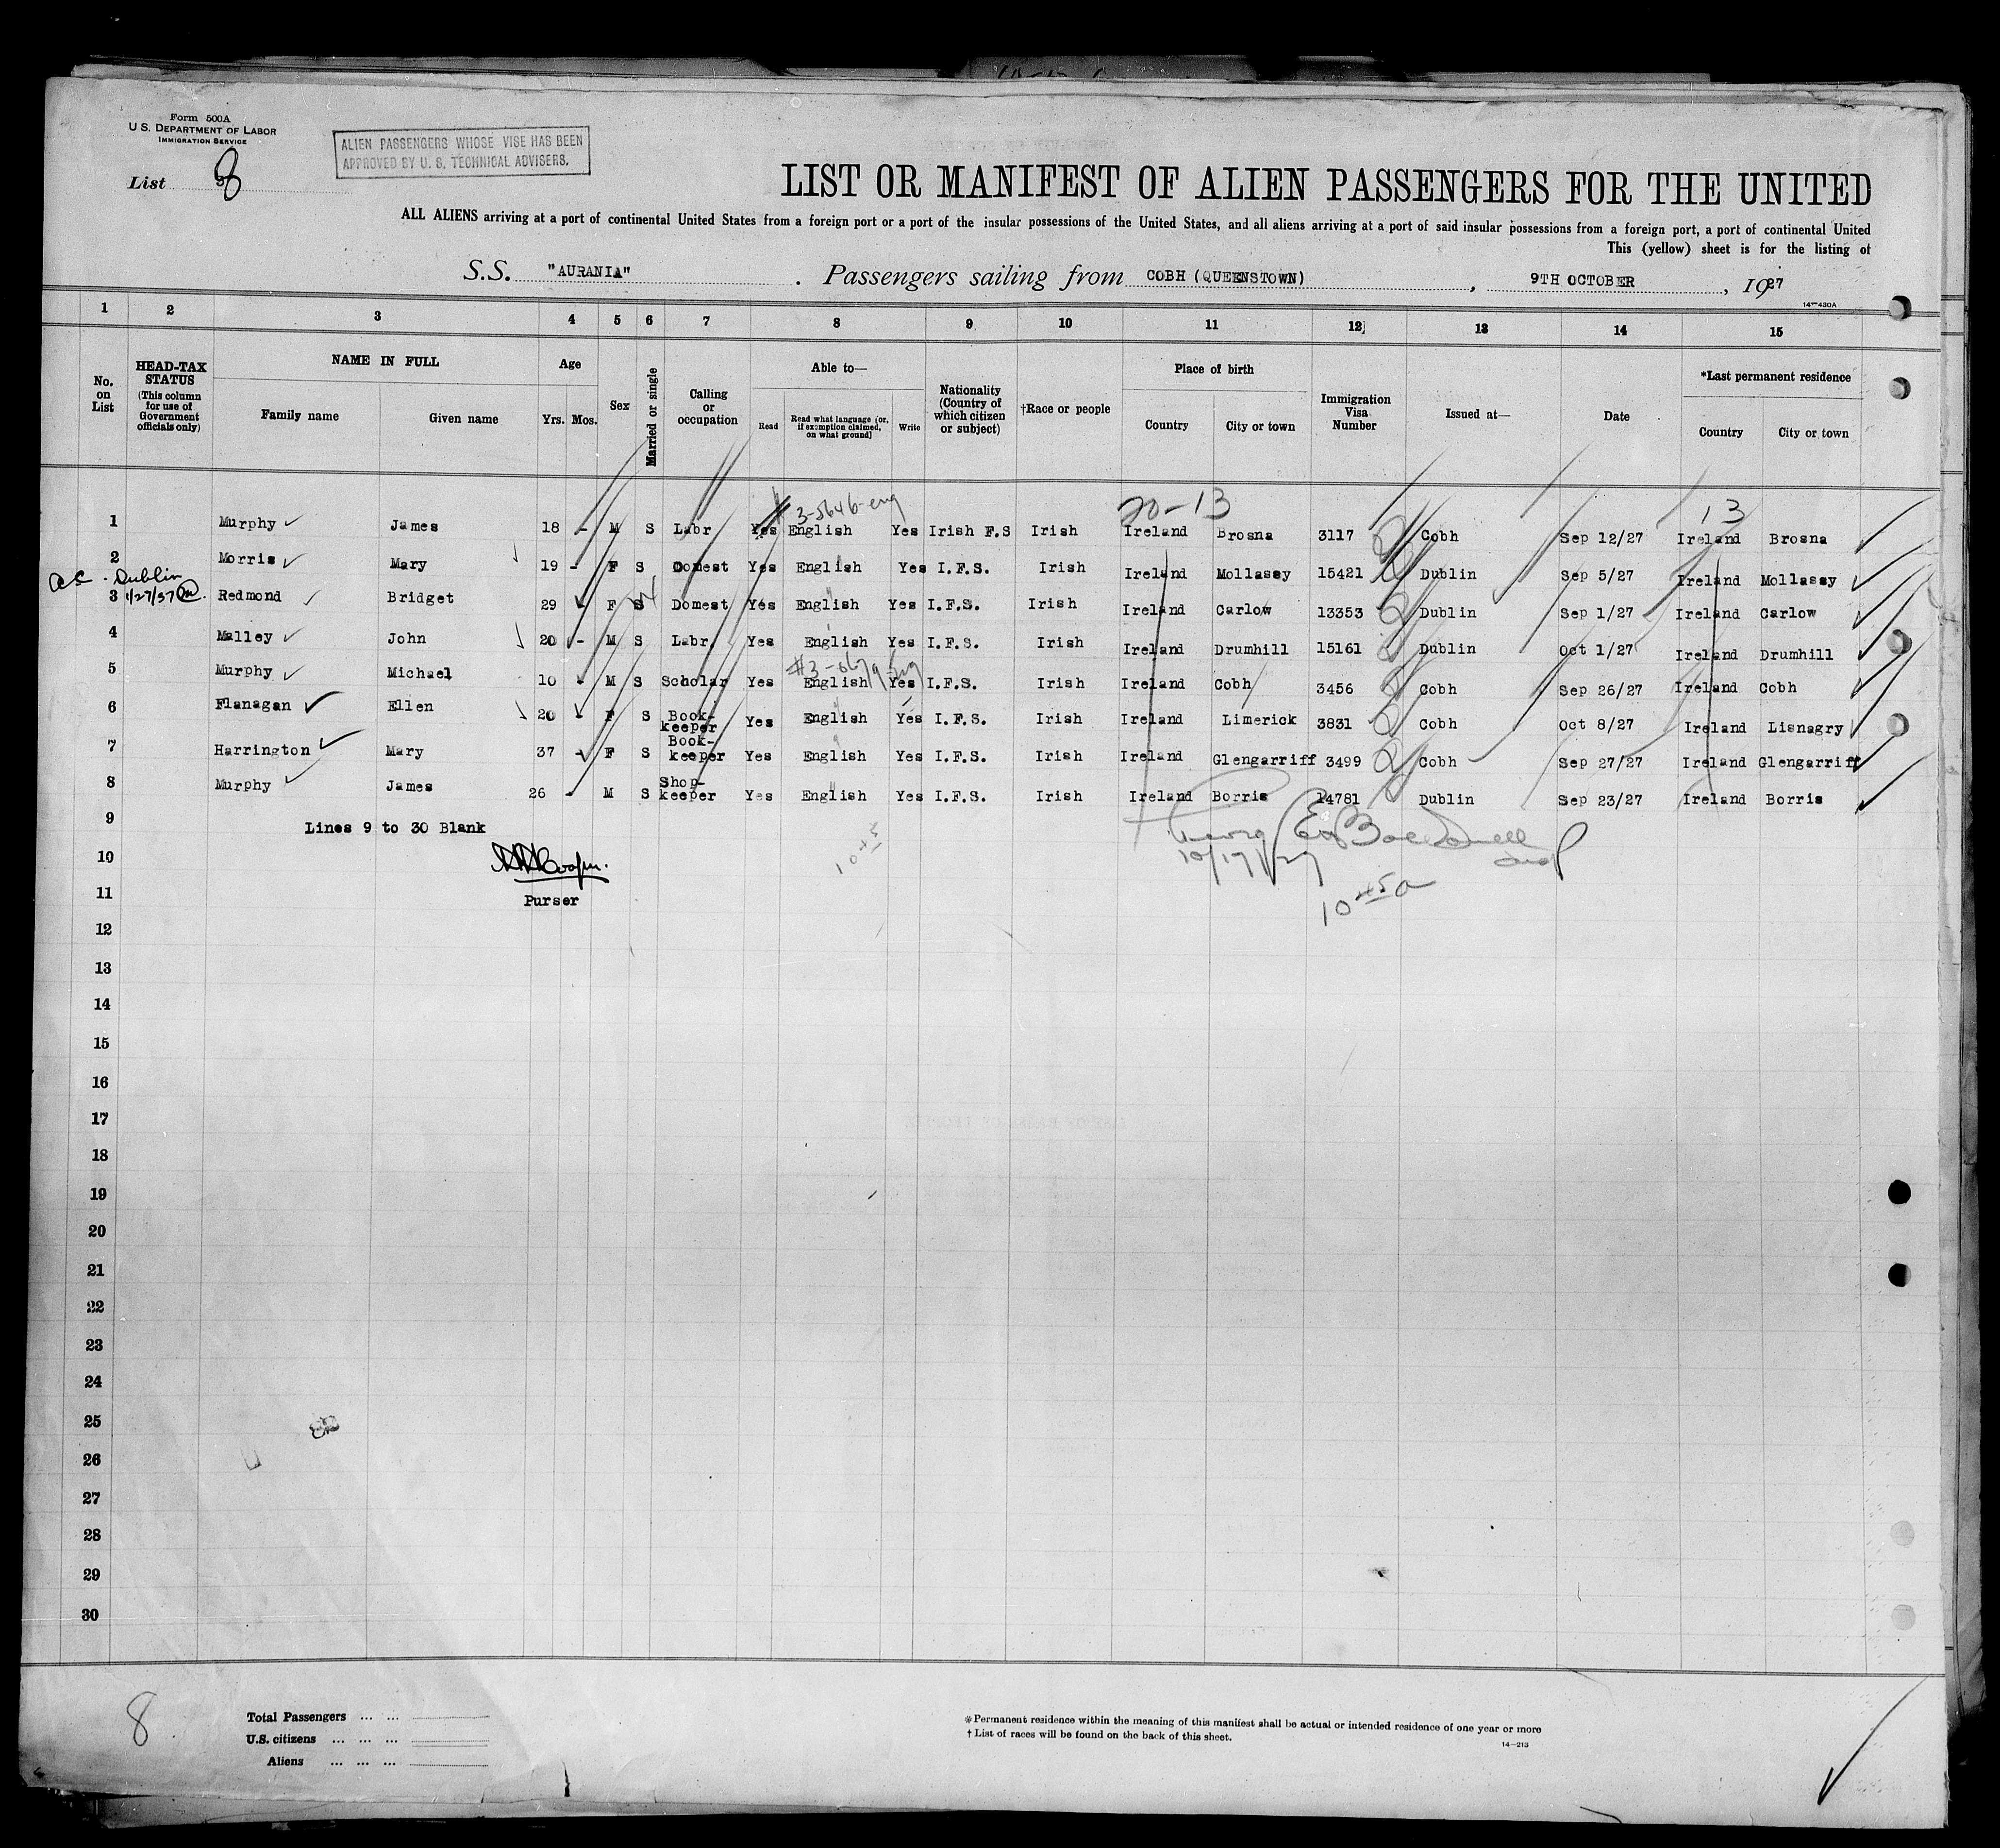 Form 500A
U.S. DEPARTMENT OF LABOR
IMMIGRATION SERVICE
ALIEN PASSENGERS WHOSE VISE HAS BEEN
APPROVED BY U. S. TECHNICAL ADVISERS.
List 8
LIST OR MANIFEST OF ALIEN PASSENGERS FOR THE UNITED
ALL ALIENS arriving at a port of continental United States from a foreign port or a port of the insular possessions of the United States, and all aliens arriving at a port of said insular possessions from a foreign port, a port of continental United
This (yellow) sheet is for the listing of
S.S. "AURANIA". Passengers sailing from COBH (QUEENSTOWN), 9TH OCTOBER, 1927
14—430A
1 2 3 4 5 6 7 8 9 10 11 12 13 14 15
No. on List HEAD-TAX STATUS (This column for use of Government officials only) NAME IN FULL Family name Given name Age Yrs. Mos. Sex Married or single Calling or occupation Able to— Read Read what language (or, if exemption claimed, on what ground) Write Nationality (Country of which citizen or subject) †Race or people Place of birth Country City or town Immigration Visa Number Issued at— Date *Last permanent residence Country City or town
#3-5646-eng 20-13 13
1 Murphy James 18 - M S Labr Yes English Yes Irish F.S Irish Ireland Brosna 3117 Cobh Sep 12/27 Ireland Brosna
2 Morris Mary 19 - F S Domest Yes English Yes I.F.S. Irish Ireland Mollassy 15421 Dublin Sep 5/27 Ireland Mollassy
Dublin
1/27/37
3 Redmond Bridget 29 - F S Domest Yes English Yes I.F.S. Irish Ireland Carlow 13353 Dublin Sep 1/27 Ireland Carlow
4 Malley John 20 - M S Labr. Yes English Yes I.F.S. Irish Ireland Drumhill 15161 Dublin Oct 1/27 Ireland Drumhill
5 Murphy Michael 10 - M S Scholar Yes English Yes I.F.S. Irish Ireland Cobh 3456 Cobh Sep 26/27 Ireland Cobh
6 Flanagan Ellen 20 - F S Book-keeper Yes English Yes I.F.S. Irish Ireland Limerick 3831 Cobh Oct 8/27 Ireland Lisnagry
7 Harrington Mary 37 - F S Book-keeper Yes English Yes I.F.S. Irish Ireland Glengarriff 3499 Cobh Sep 27/27 Ireland Glengarriff
8 Murphy James 26 - M S Shop-keeper Yes English Yes I.F.S. Irish Ireland Borris 14781 Dublin Sep 23/27 Ireland Borris
9 Lines 9 to 30 Blank
10 10/17/27
11 Purser 10 45 a
12
13
14
15
16
17
18
19
20
21
22
23
24
25
26
27
28
29
30
8
Total Passengers ... ...
U.S. citizens ... ... ...
Aliens ... ... ...
*Permanent residence within the meaning of this manifest shall be actual or intended residence of one year or more
†List of races will be found on the back of this sheet.
14—213